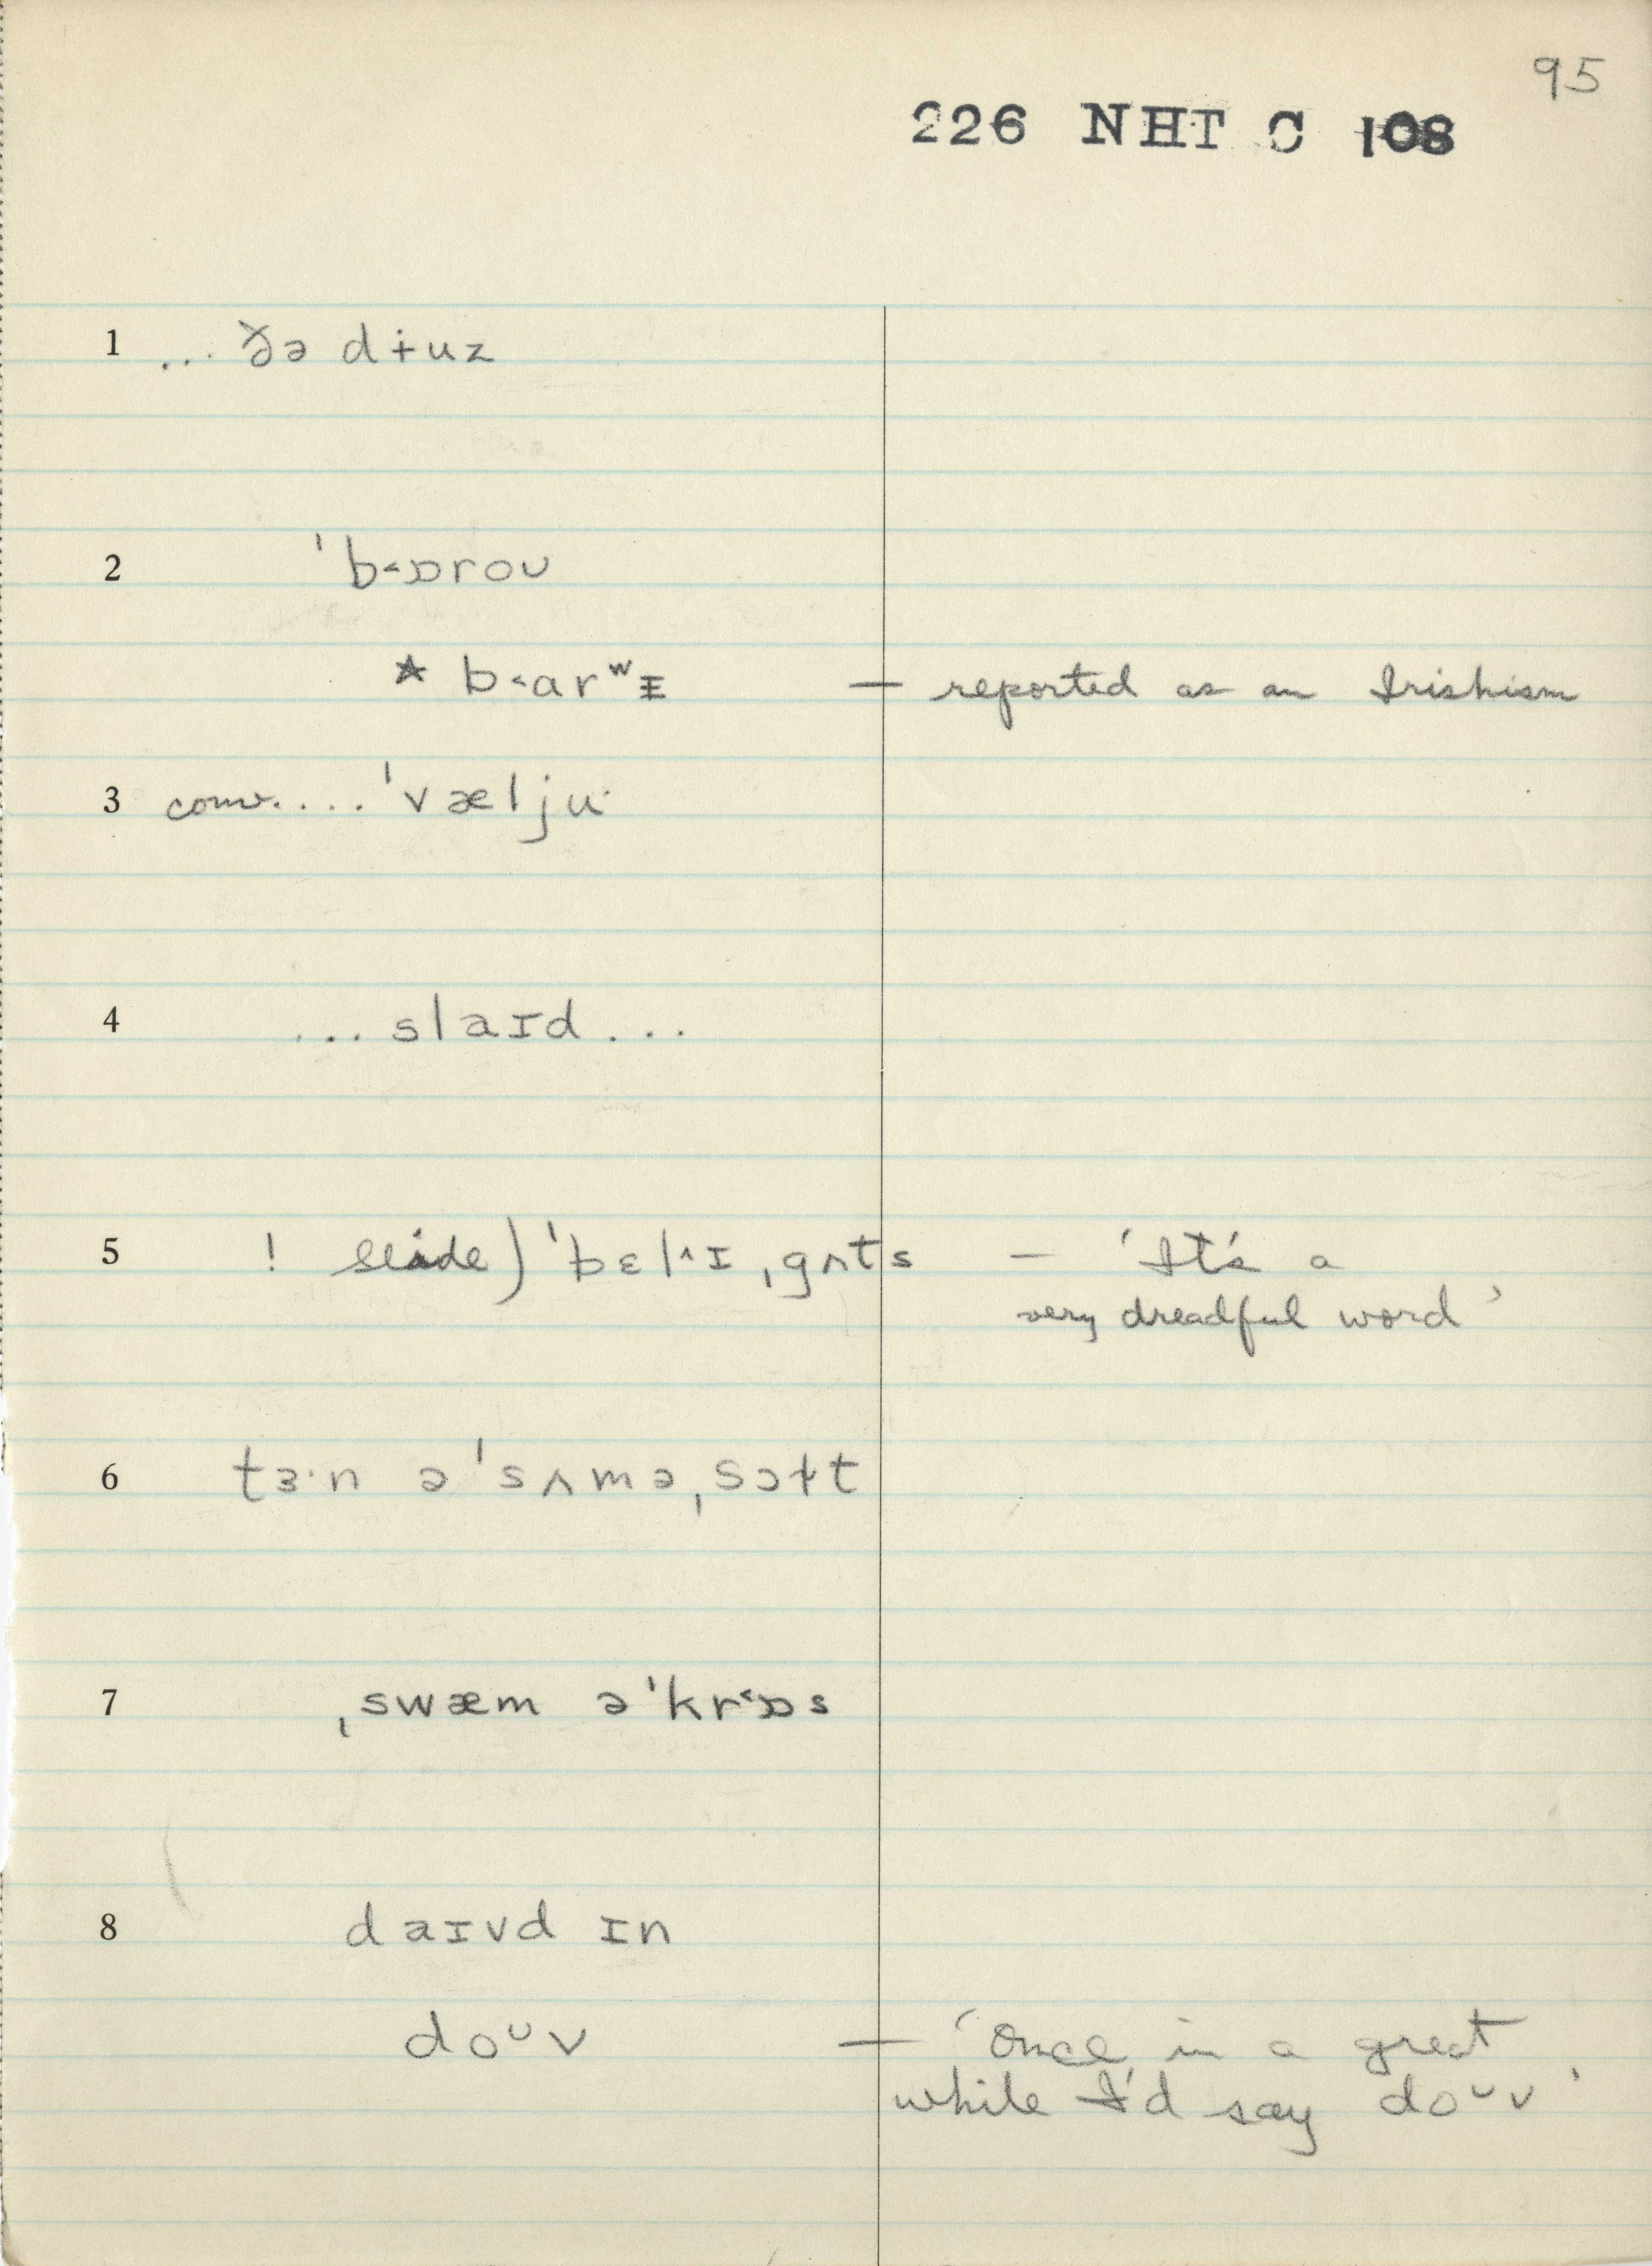 95
226 NHT C 108
1 ... ðə dɨuz
2 ˈb˂ɒroᴜ
* b˂arʷᵻ — reported as an Irishism
3 conv. ... ˈvæljuˑ
4 ... slaɪd ...
5 ! slide) ˈbɛl˄ɪˌgʌts — 'It's a
very dreadful word'
6 tɜˑn ə ˈsʌməˌsɔɫt
7 ˌswæm əˈkr˂ɒs
8 daɪvd ɪn
doᵘv — 'Once in a great
while I'd say doᵘv'